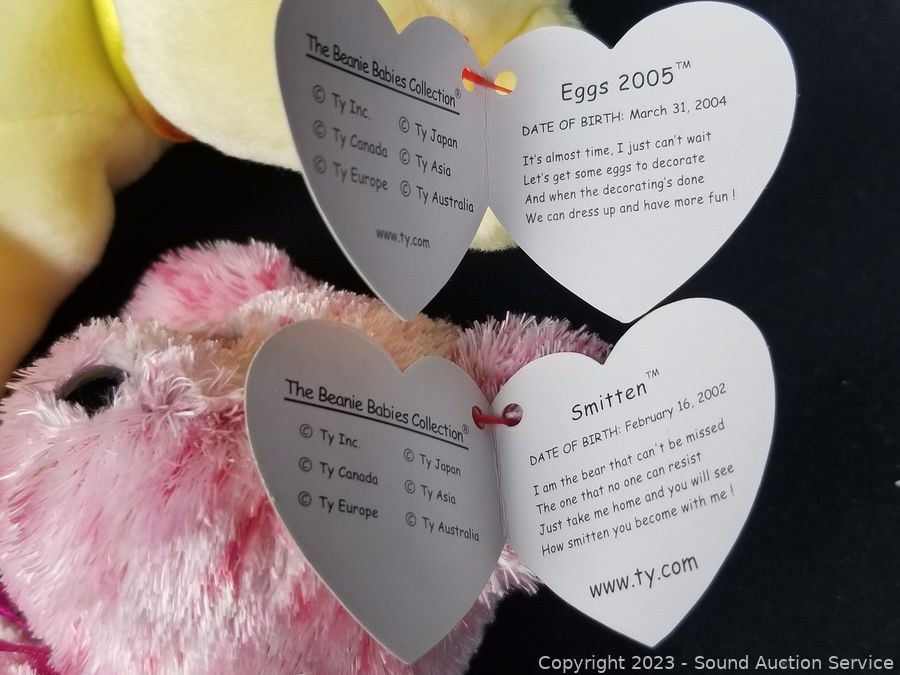 The Beanie Babies Collection®
© Ty Inc.
© Ty Canada
© Ty Europe
© Ty Japan
© Ty Asia
© Ty Australia
www.ty.com
Eggs 2005™
DATE OF BIRTH: March 31, 2004
It's almost time, I just can't wait
Let's get some eggs to decorate
And when the decorating's done
We can dress up and have more fun !
The Beanie Babies Collection®
© Ty Inc.
© Ty Canada
© Ty Europe
© Ty Japan
© Ty Asia
© Ty Australia
Smitten™
DATE OF BIRTH: February 16, 2002
I am the bear that can't be missed
The one that no one can resist
Just take me home and you will see
How smitten you become with me !
www.ty.com
Copyright 2023 - Sound Auction Service